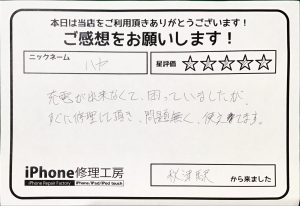 本日は当店をご利用頂きありがとうございます!
ご感想をお願いします!
ニックネーム
ハヤ
星評価 ☆☆☆☆☆
充電が出来なくて、困っていましたが、
すぐに修理して頂き、問題無く、使えてます。
iPhone修理工房
iPhone Repair Factory iPhone/iPad/iPod touch
から来ました